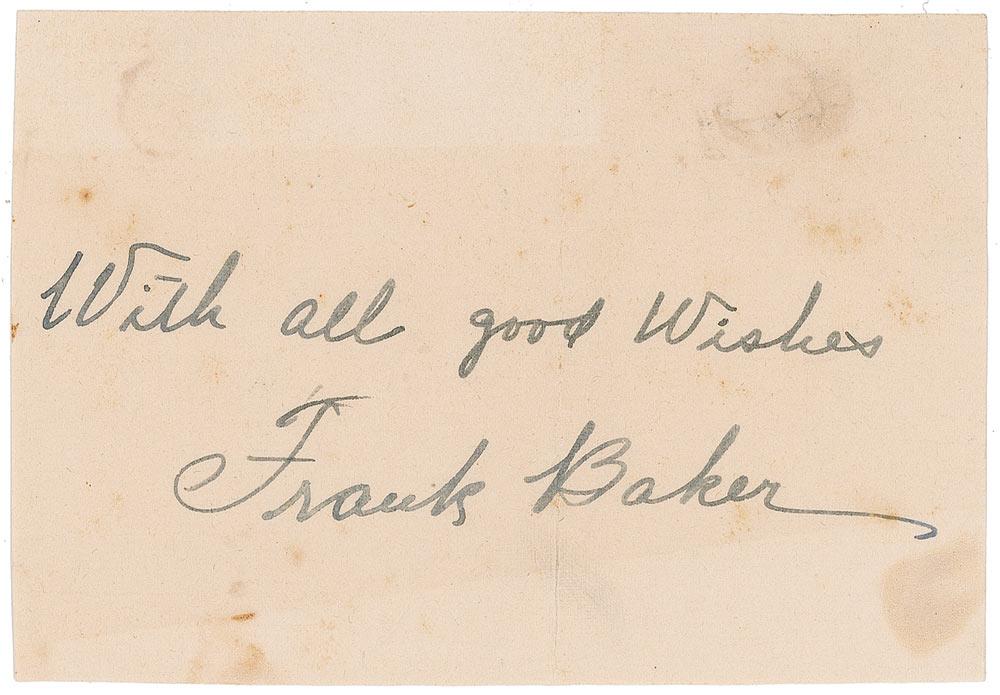 With all good Wishes
Frank Baker